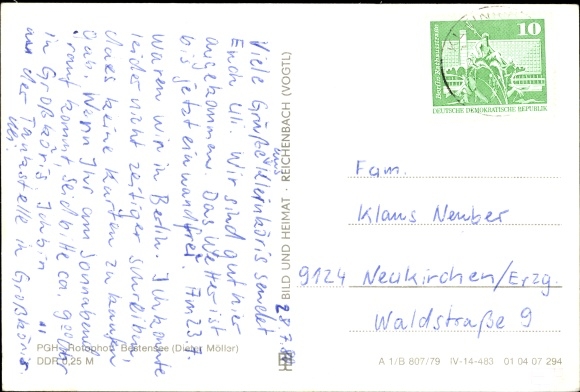 Viele Grüße aus Kleinköris sendet
Euch Uli. Wir sind gut hier
angekommen. Das Wetter ist
bis jetzt einwandfrei. Am 23.7.
waren wir in Berlin. Ich konnte
leider nicht zeitiger schreiben,
da es keine Karten zu kaufen
gab. Wenn Ihr am Sonnabend
rauf kommt, seid bitte ca. 9.00 Uhr
in Großköris. Ich bin
an der Tankstelle in Großköris.
Uli.
BILD UND HEIMAT · REICHENBACH (VOGTL)
Berlin, Fischhauszeile
10
DEUTSCHE DEMOKRATISCHE REPUBLIK
Fam.
Klaus Neuber
9124 Neukirchen/Erzg.
Waldstraße 9
PGH Rotophot, Bestensee (Dieter Möller)
DDR 0,25 M
A 1/B 807/79 IV-14-483 01 04 07 294